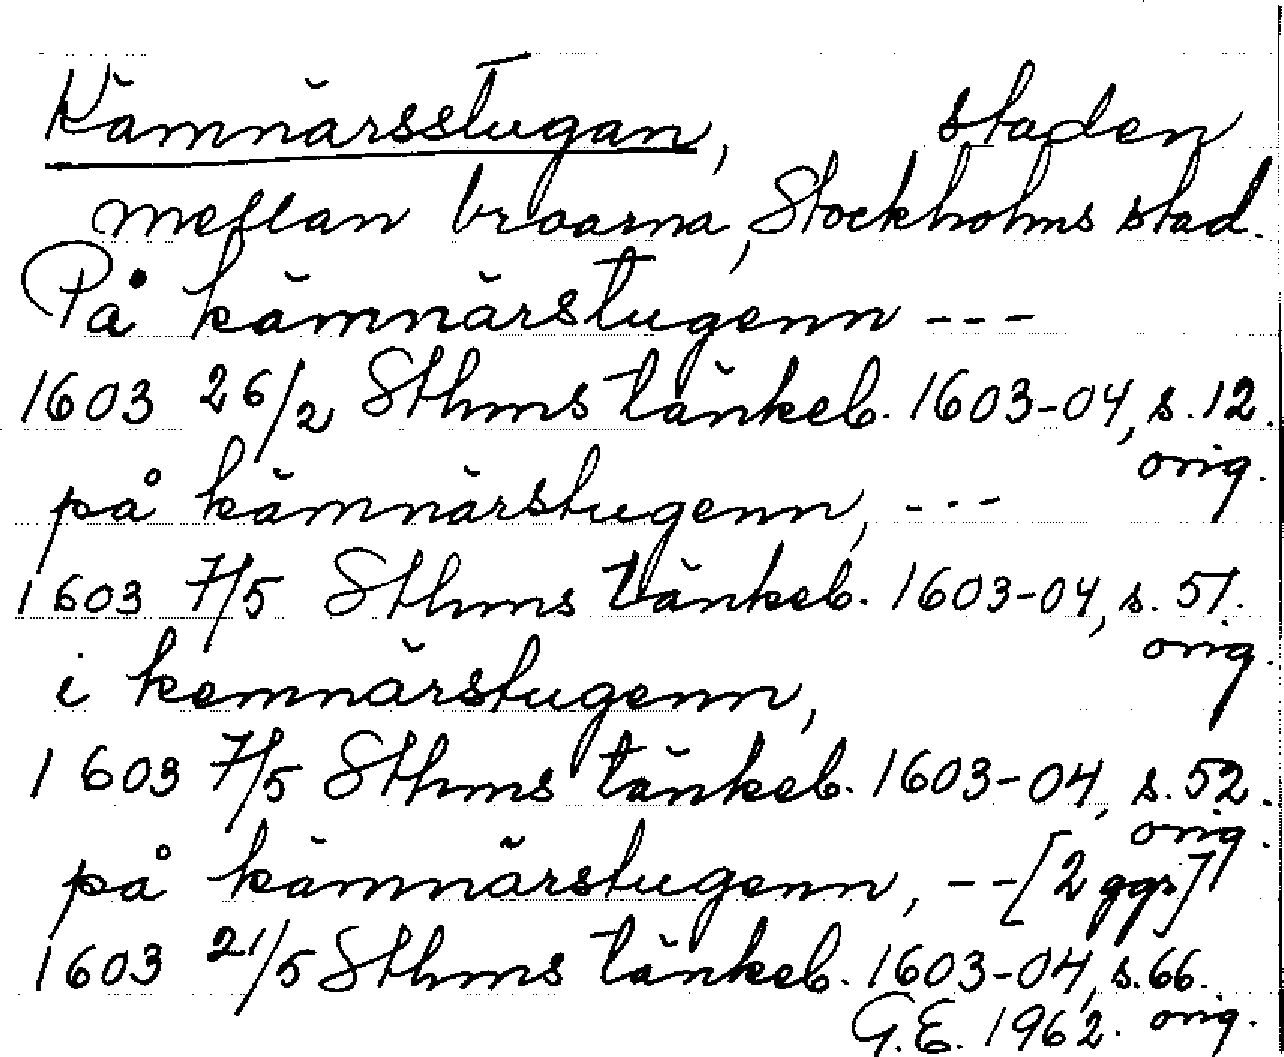 Kämnärsstugan, staden
mellan broarna, Stockholms stad.
På kämnärstugenn ---
1603 26/2 Sthms tänkeb. 1603-04, s. 12.
orig.
på kämnärstugenn, ---
1603 7/5 Sthms tänkeb. 1603-04, s. 51.
orig.
i kemnärstugenn,
1603 7/5 Sthms tänkeb. 1603-04, s. 52.
orig.
på kämnärstugenn, -- [2 ggr]
1603 21/5 Sthms tänkeb. 1603-04, s. 66.
G.E. 1962. orig.